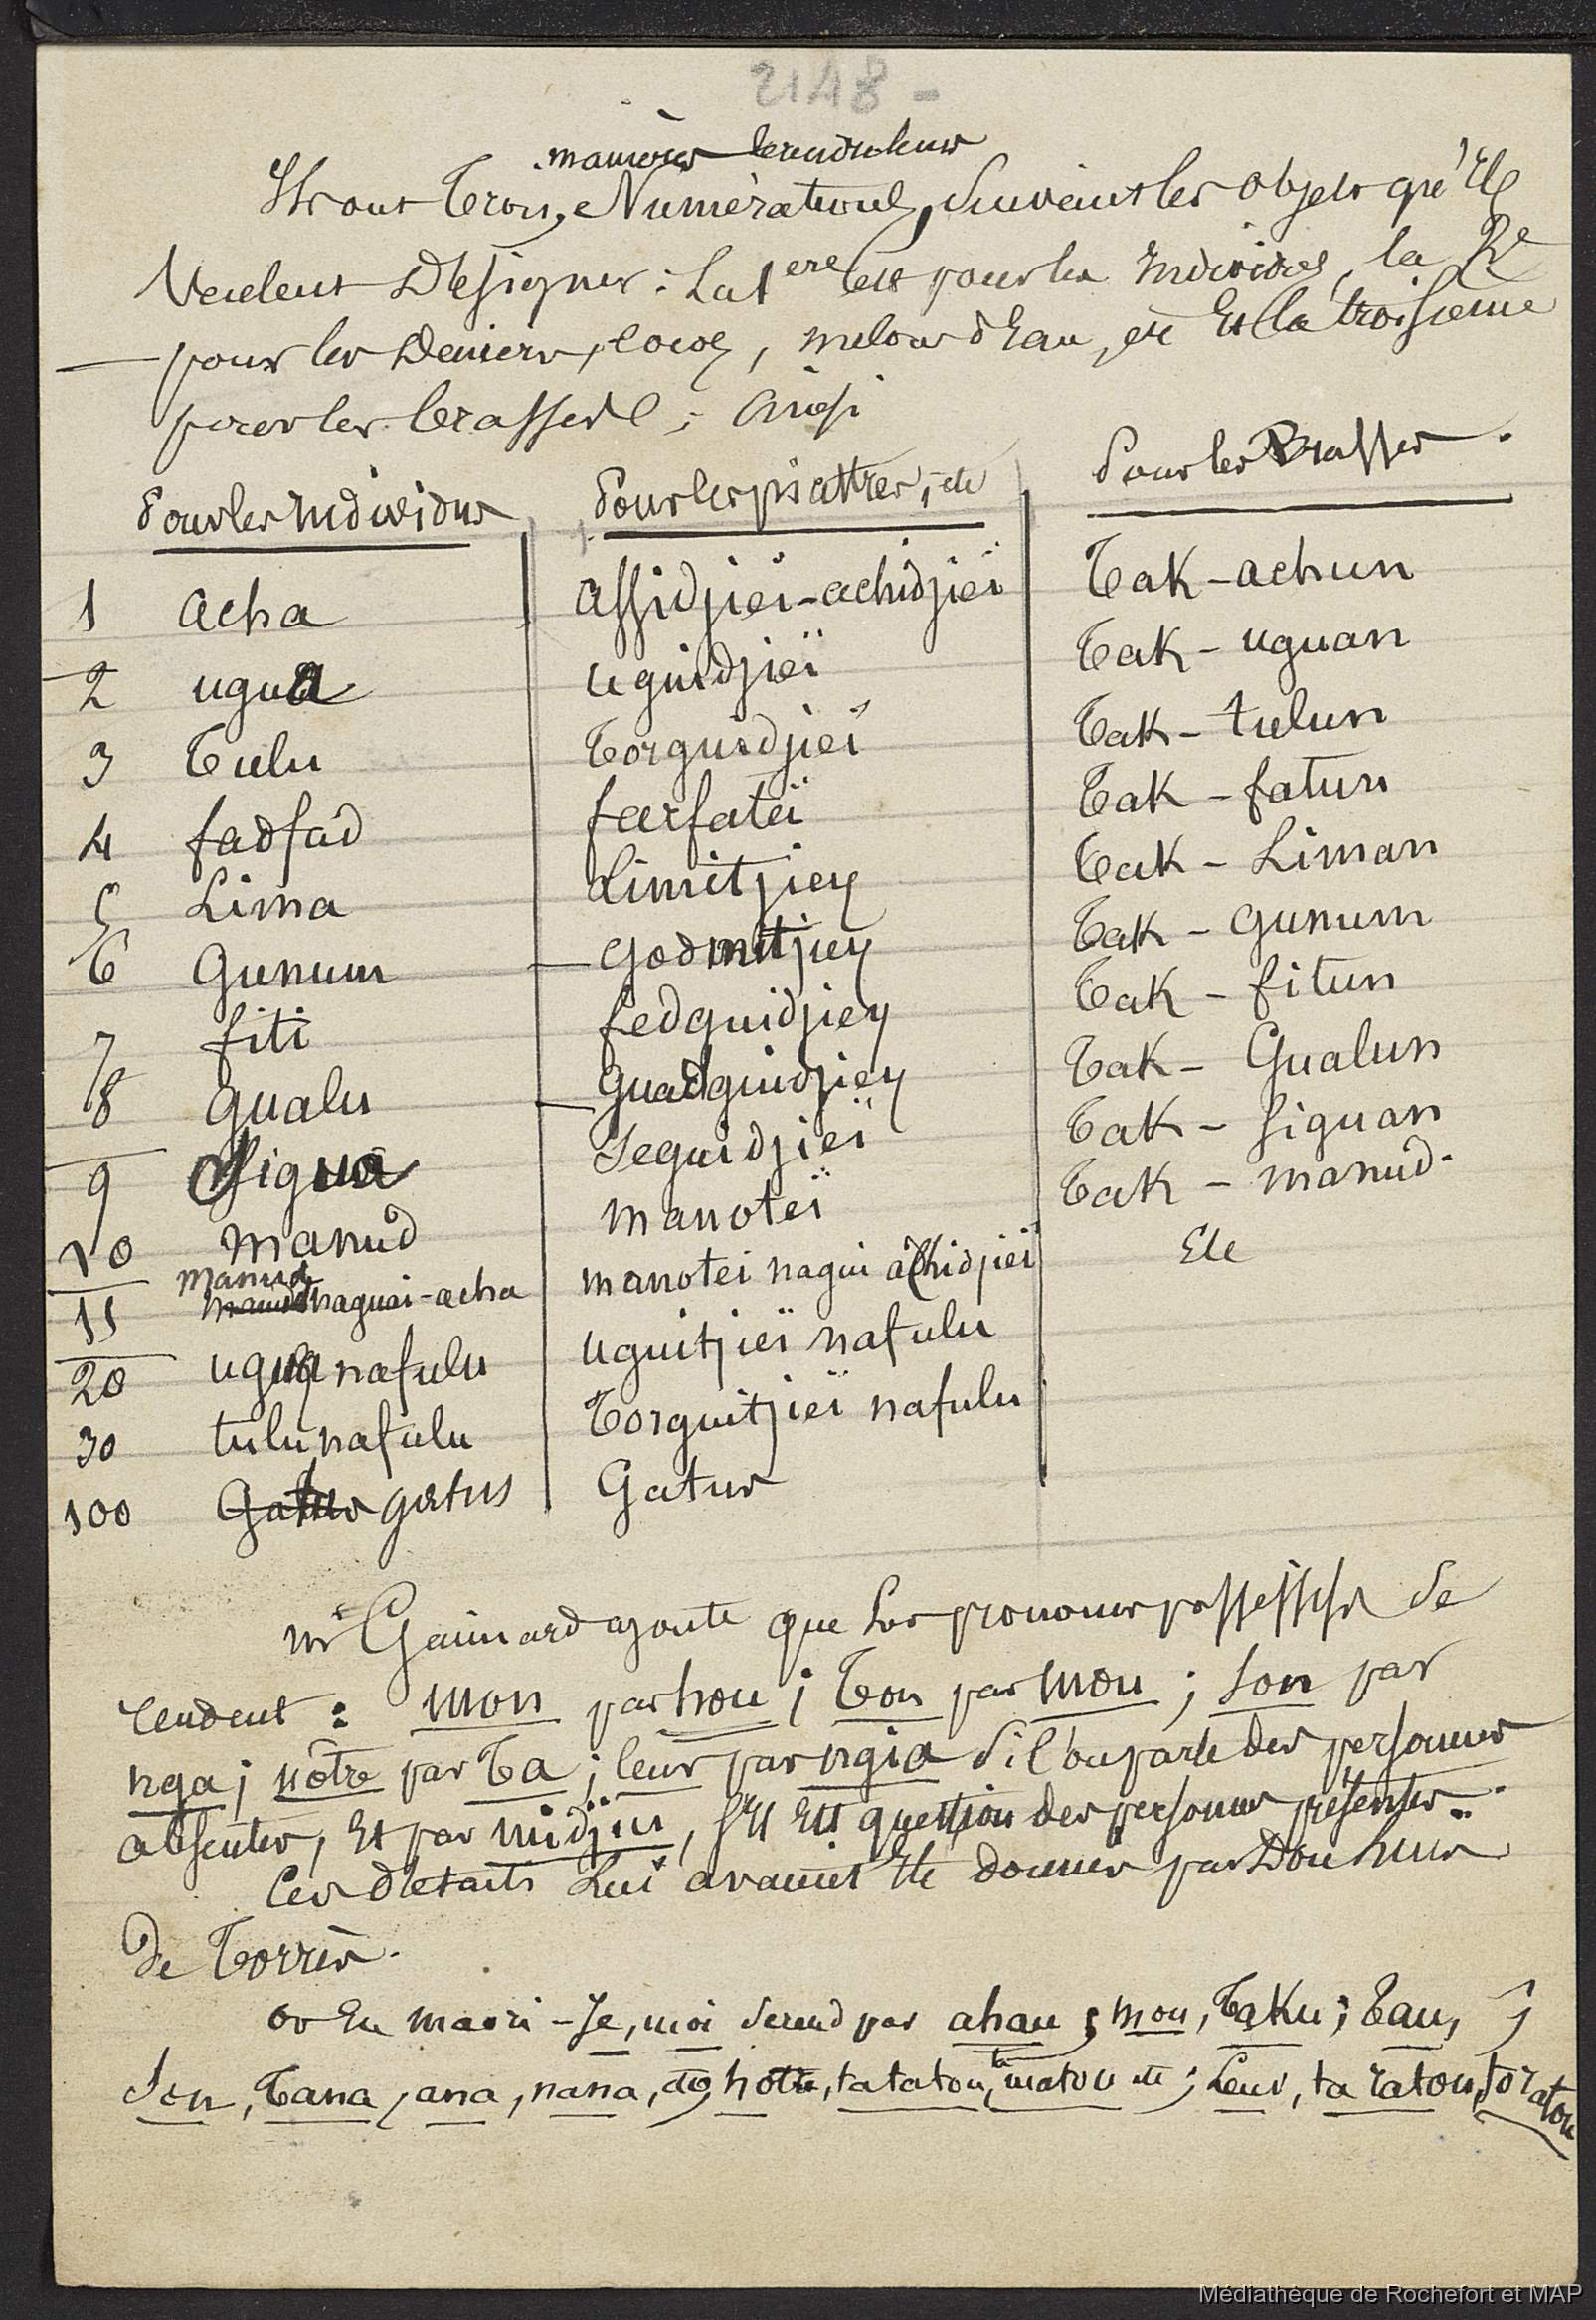 2148 -
manières
Ils ont trois, Numérations, Suivant les objets qu'Ils
Veulent Désigner : La 1ere Est pour les Individus, la 2e
pour les Deniers, cocos, melons d'Eau, etc Et la troisieme
pour les brasses ; Ainsi
Pour les Individus | Pour les piastres, etc | Pour les Brasses.
1 acha | assidjieï-achidjieï | Tak-achun
2 ugua | uguidjieï | Tak-uguan
3 Tulu | Torguidjieï | Tak-tulun
4 fadfad | farfateï | Tak-fatun
5 Lima | Limitjiey | Tak-Liman
6 Gunum | Godmitjiey | Tak-gunum
7 fiti | fedguidjiey | Tak-fitun
8 Gualu | Guadguidjiey | Tak-Gualun
9 Sigua | Seguidjieï | Tak-siguan
10 manud | manoteï | Tak-manud.
11 manud naguai-acha | manotei nagui achidjieï | Etc
20 ugua nafulu | uguitjieï nafulu
30 tulu nafulu | Torguitjieï nafulu
100 Gatus gatus | Gatus
mr Gaimard ajoute que Les pronoms possessifs se
rendent : mon par hou ; Ton par mou ; son par
nga ; nôtre par Ta ; leur par ngia si l'on parle des personnes
absentes, Et par midjiu, s'Il Est question des personnes présentes..
Ces détails Lui avaient Eté donnés par Don Luis
De Torrès.
or En maori - Je, moi se rend par ahau ; mon, Taku ; Tau, ;
Son, Tana, ana, nana, etc, notre, tatatou, ta matou etc ; Leur, ta ratou, to ratou
Médiathèque de Rochefort et MAP